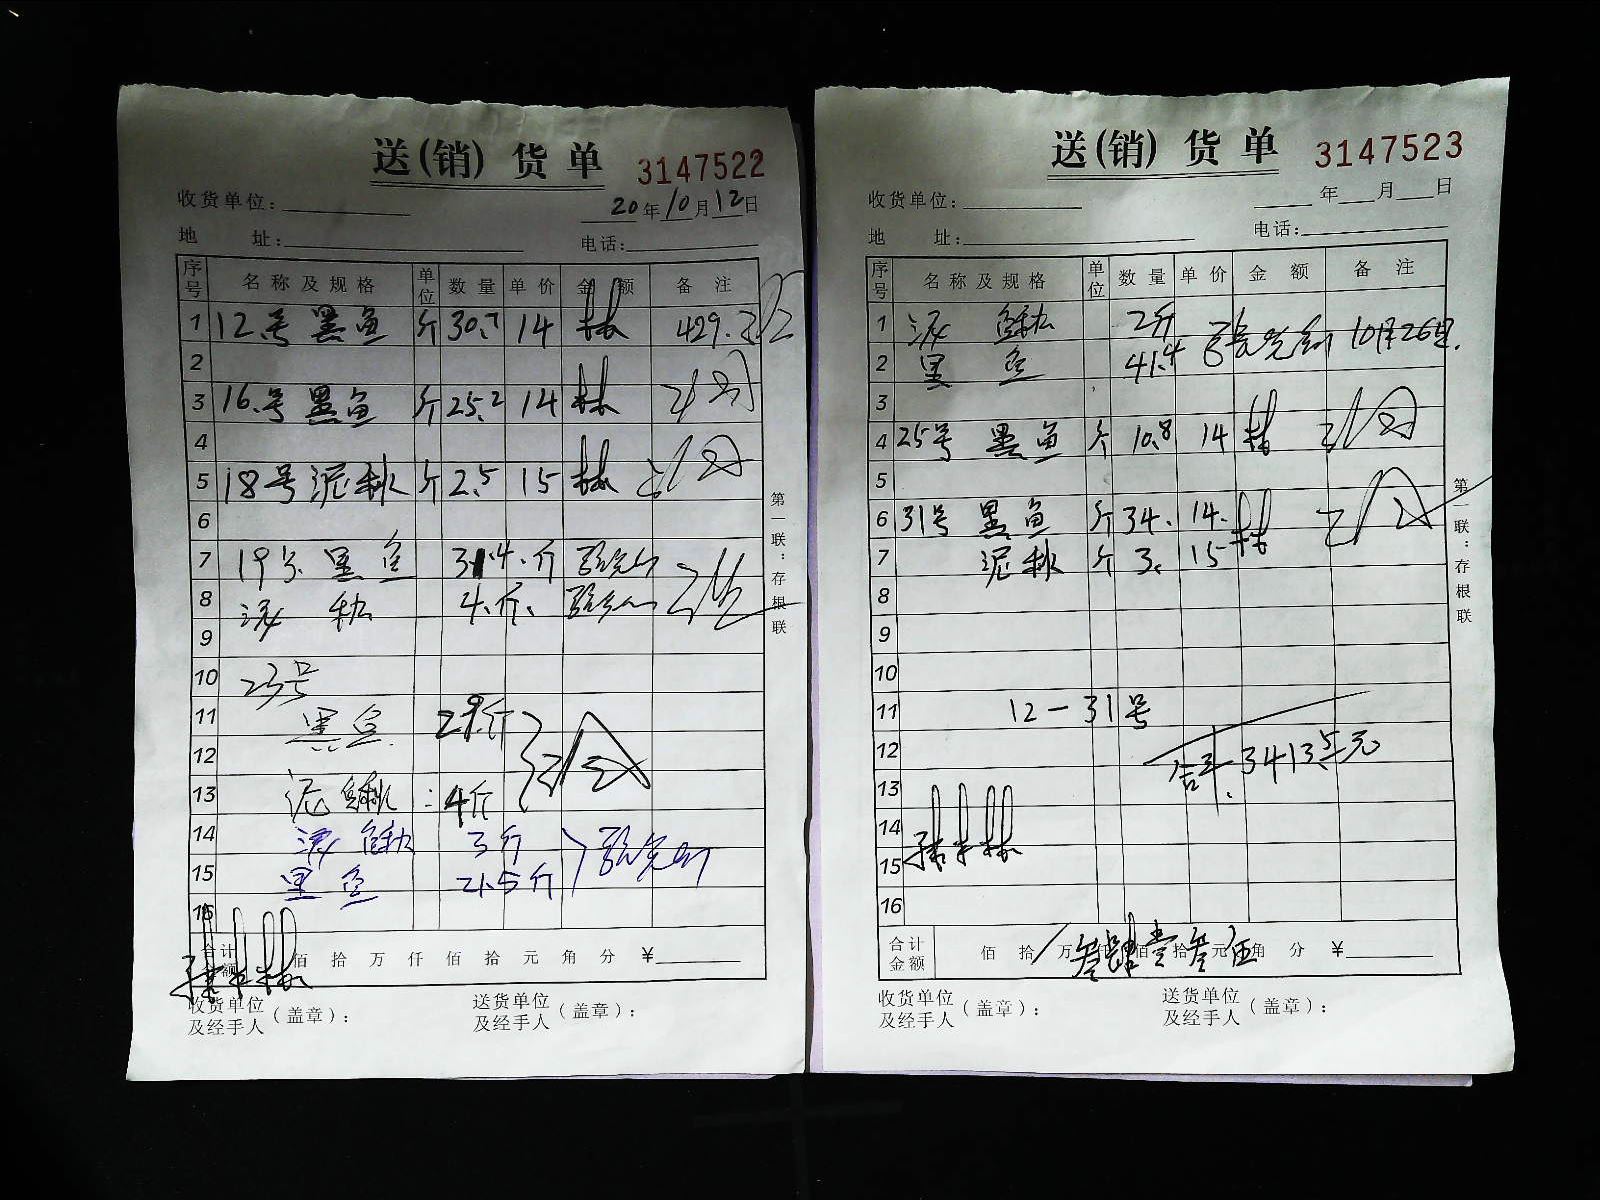 送(销)货单 3147522
收货单位:
20年10月12日
地 址: 电话:
序号 名称及规格 单位 数量 单价 金额 备注
1 12号 黑鱼 斤 30.7 14 林 429.
2
3 16号 黑鱼 斤 25.2 14 林
4
5 18号 泥秋 斤 2.5 15 林
6
7 19号 黑鱼 31.4斤
8 泥秋 4斤
9
10 23号
11 黑鱼 29斤
12
13 泥鳅 4斤
14 泥鳅 3斤
15 黑鱼 21.5斤
16
合计金额 佰拾万仟佰拾元角分 ¥
收货单位及经手人(盖章): 送货单位及经手人(盖章):
第一联:存根联
送(销)货单 3147523
收货单位: 年 月 日
地 址: 电话:
序号 名称及规格 单位 数量 单价 金额 备注
1 泥鳅 2斤 10月26号
2 黑鱼 41.4
3
4 25号 黑鱼 斤 10.8 14 林
5
6 31号 黑鱼 斤 34. 14. 林
7 泥秋 斤 3. 15
8
9
10
11 12-31号
12 合计 3413.5元
13
14
15
16
合计金额 佰拾万仟佰拾元角分 ¥
叁肆壹叁伍
收货单位及经手人(盖章): 送货单位及经手人(盖章):
第一联:存根联